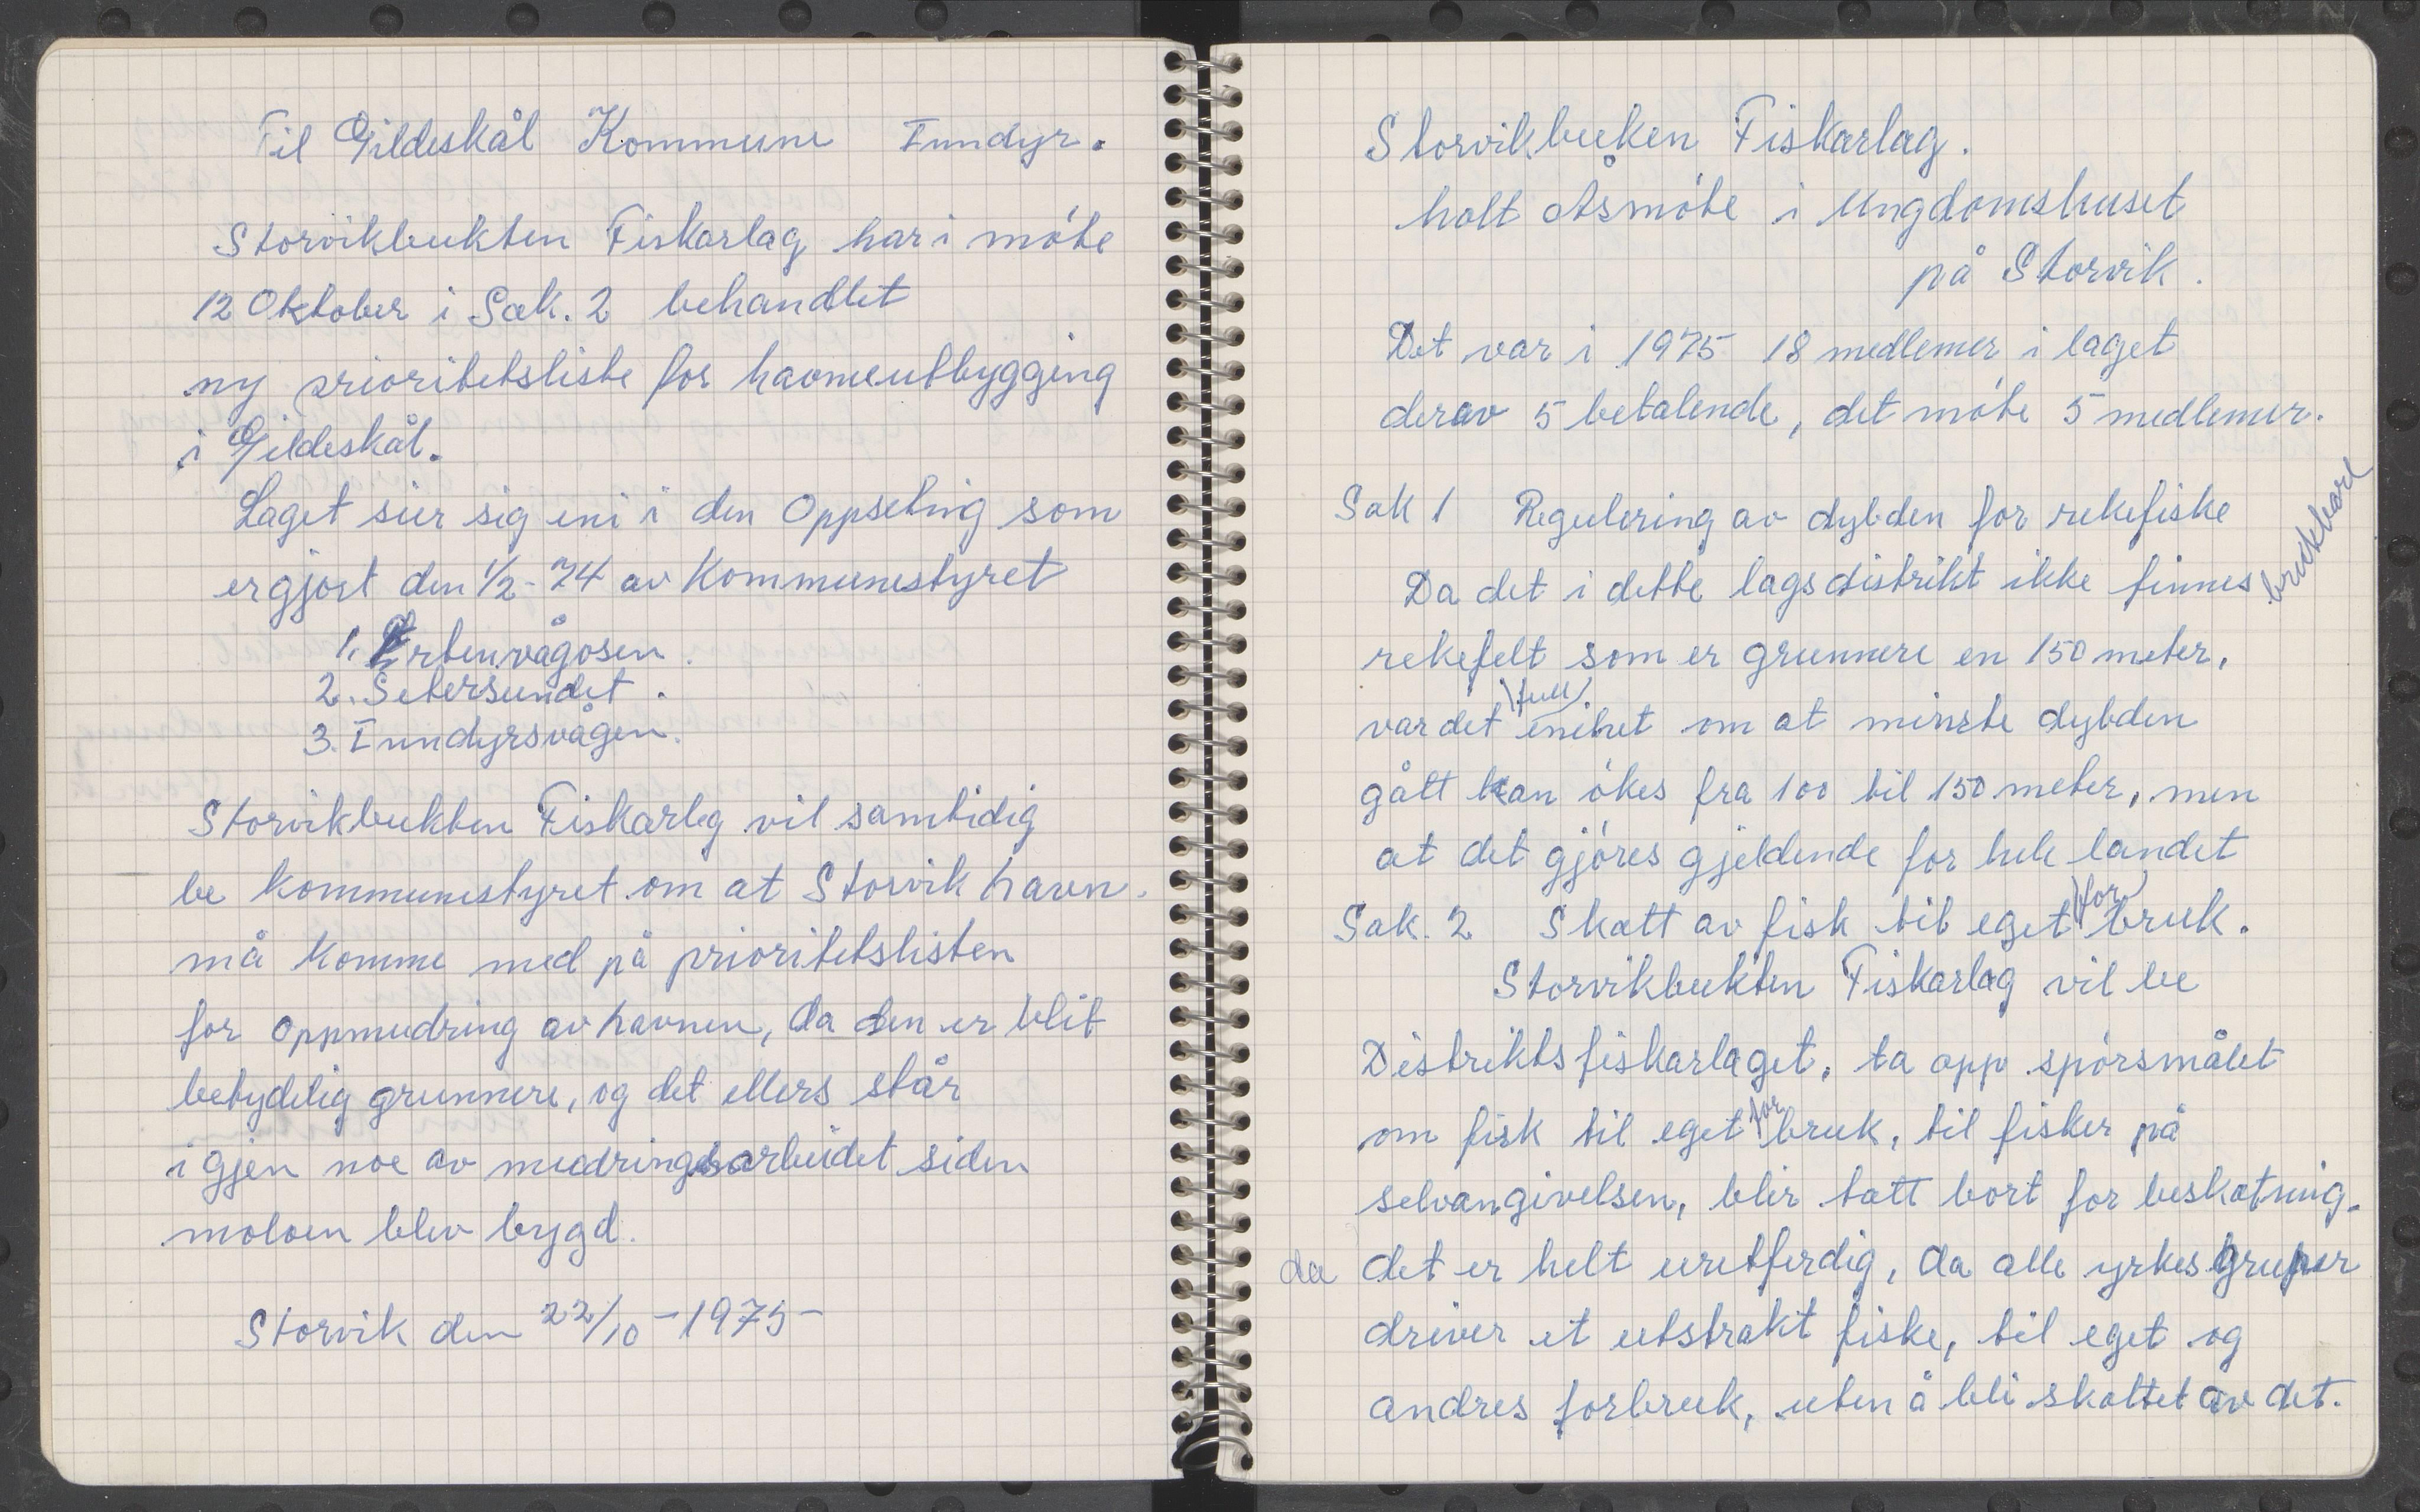 Til Gildeskål Kommune Inndyr.
Storvikbukten Fiskarlag har i móte
12 Oktober i Sak. 2 behandlet
ny prioritetsliste for havneutbygging
i Gildeskål.
Laget sier sig eni i den Oppseting som
er gjort den 1/2 - 74 av Kommunestyret
1. Ertenvågosen.
2. Setersundet.
3. Inndyrsvågen.
Storvikbukten Fiskarlag vil samtidig
be kommunestyret om at Storvik havn.
må komme med på prioritetslisten
for oppmudring av havnen, da den er blit
betydelig grunnere, og det ellers står
i gjen noe av mudringsarbeidet siden
moloen blev bygd.
Storvik den 22/10 - 1975 -
Storvikbuken Fiskarlag.
holt Åsmóte i Ungdomshuset
på Storvik.
Det var i 1975 18 medlemer i laget
derav 5 betalende, det móte 5 medlemer.
Sak 1 Regulering av dybden for rekefiske
Da det i dette lagsdistrikt ikke finnes brukbare
rekefelt som er grunnere en 150 meter,
var det full enihet om at minste dybden
gått kan ókes fra 100 til 150 meter, men
at det gjóres gjeldende for hele landet
Sak. 2 Skatt av fisk til eget for bruk.
Storvikbukten Fiskarlag vil be
Distriktsfiskarlaget, ta opp spórsmålet
om fisk til eget for bruk, til fisker på
selvangivelsen, blir tatt bort for beskatning.
da det er helt uretferdig, da alle yrkesgruper
driver et utstrakt fiske, til eget og
andres forbruk, uten å bli skattet av det.